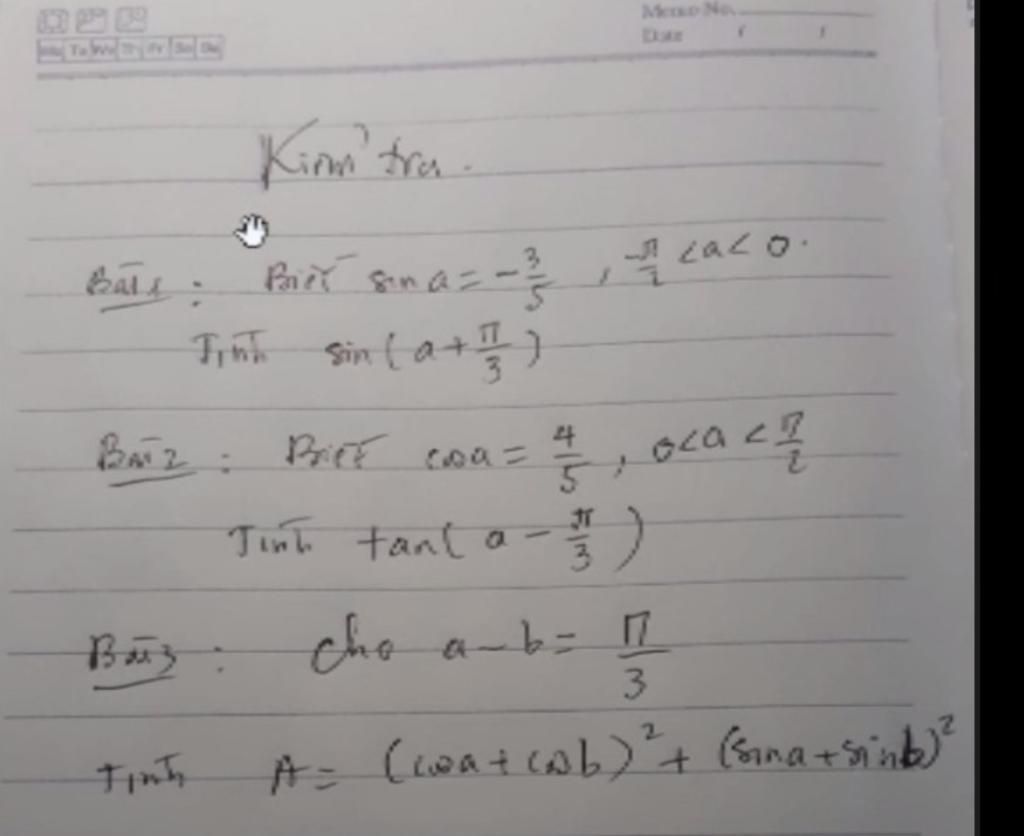 Memo No.
Date / /
Mo Tu We Th Fr Sa Su
Kiểm tra.
Bài 1 : Biết sin a = -3/5 , -π/2 < a < 0.
Tính sin( a + π/3 )
Bài 2 : Biết cos a = 4/5 , 0 < a < π/2
Tính tan( a - π/3 )
Bài 3 : Cho a - b = π/3
Tính A = (cos a + cos b)² + (sin a + sin b)²